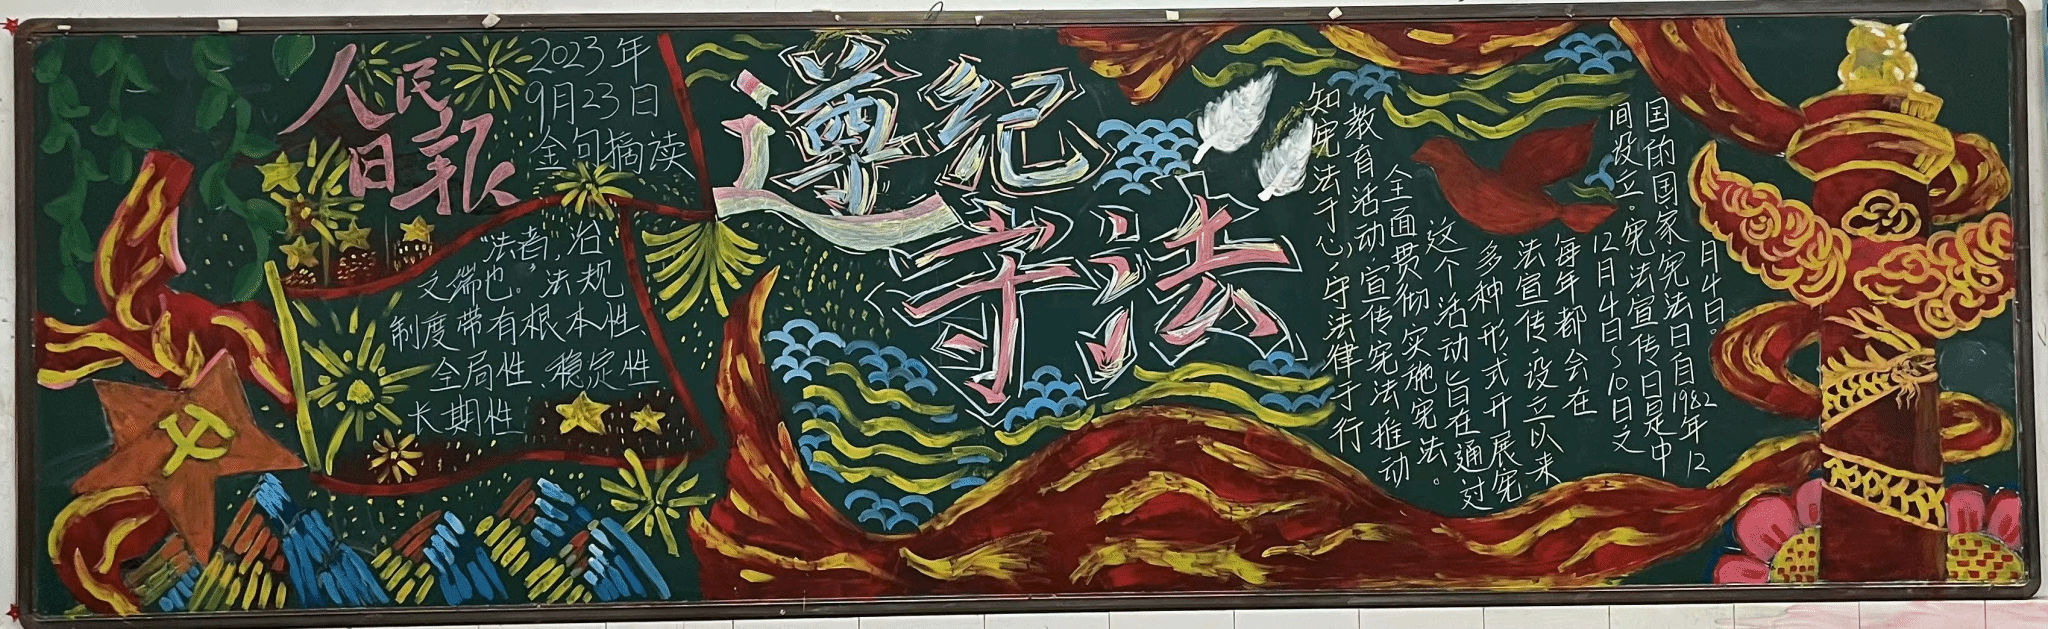 人民
日报
2023年
9月23日
金句摘读
“法者,治
之端也。”法规
制度带有根本性、
全局性、稳定性
长期性
遵纪
守法
知宪法于心,守法律于行
教育活动,宣传宪法推动
全面贯彻实施宪法。
这个活动旨在通过
多种形式开展宪
法宣传设立以来
每年都会在
12月4日~10日之
间设立。宪法宣传日是中
国的国家宪法日自1982年12
月4日。